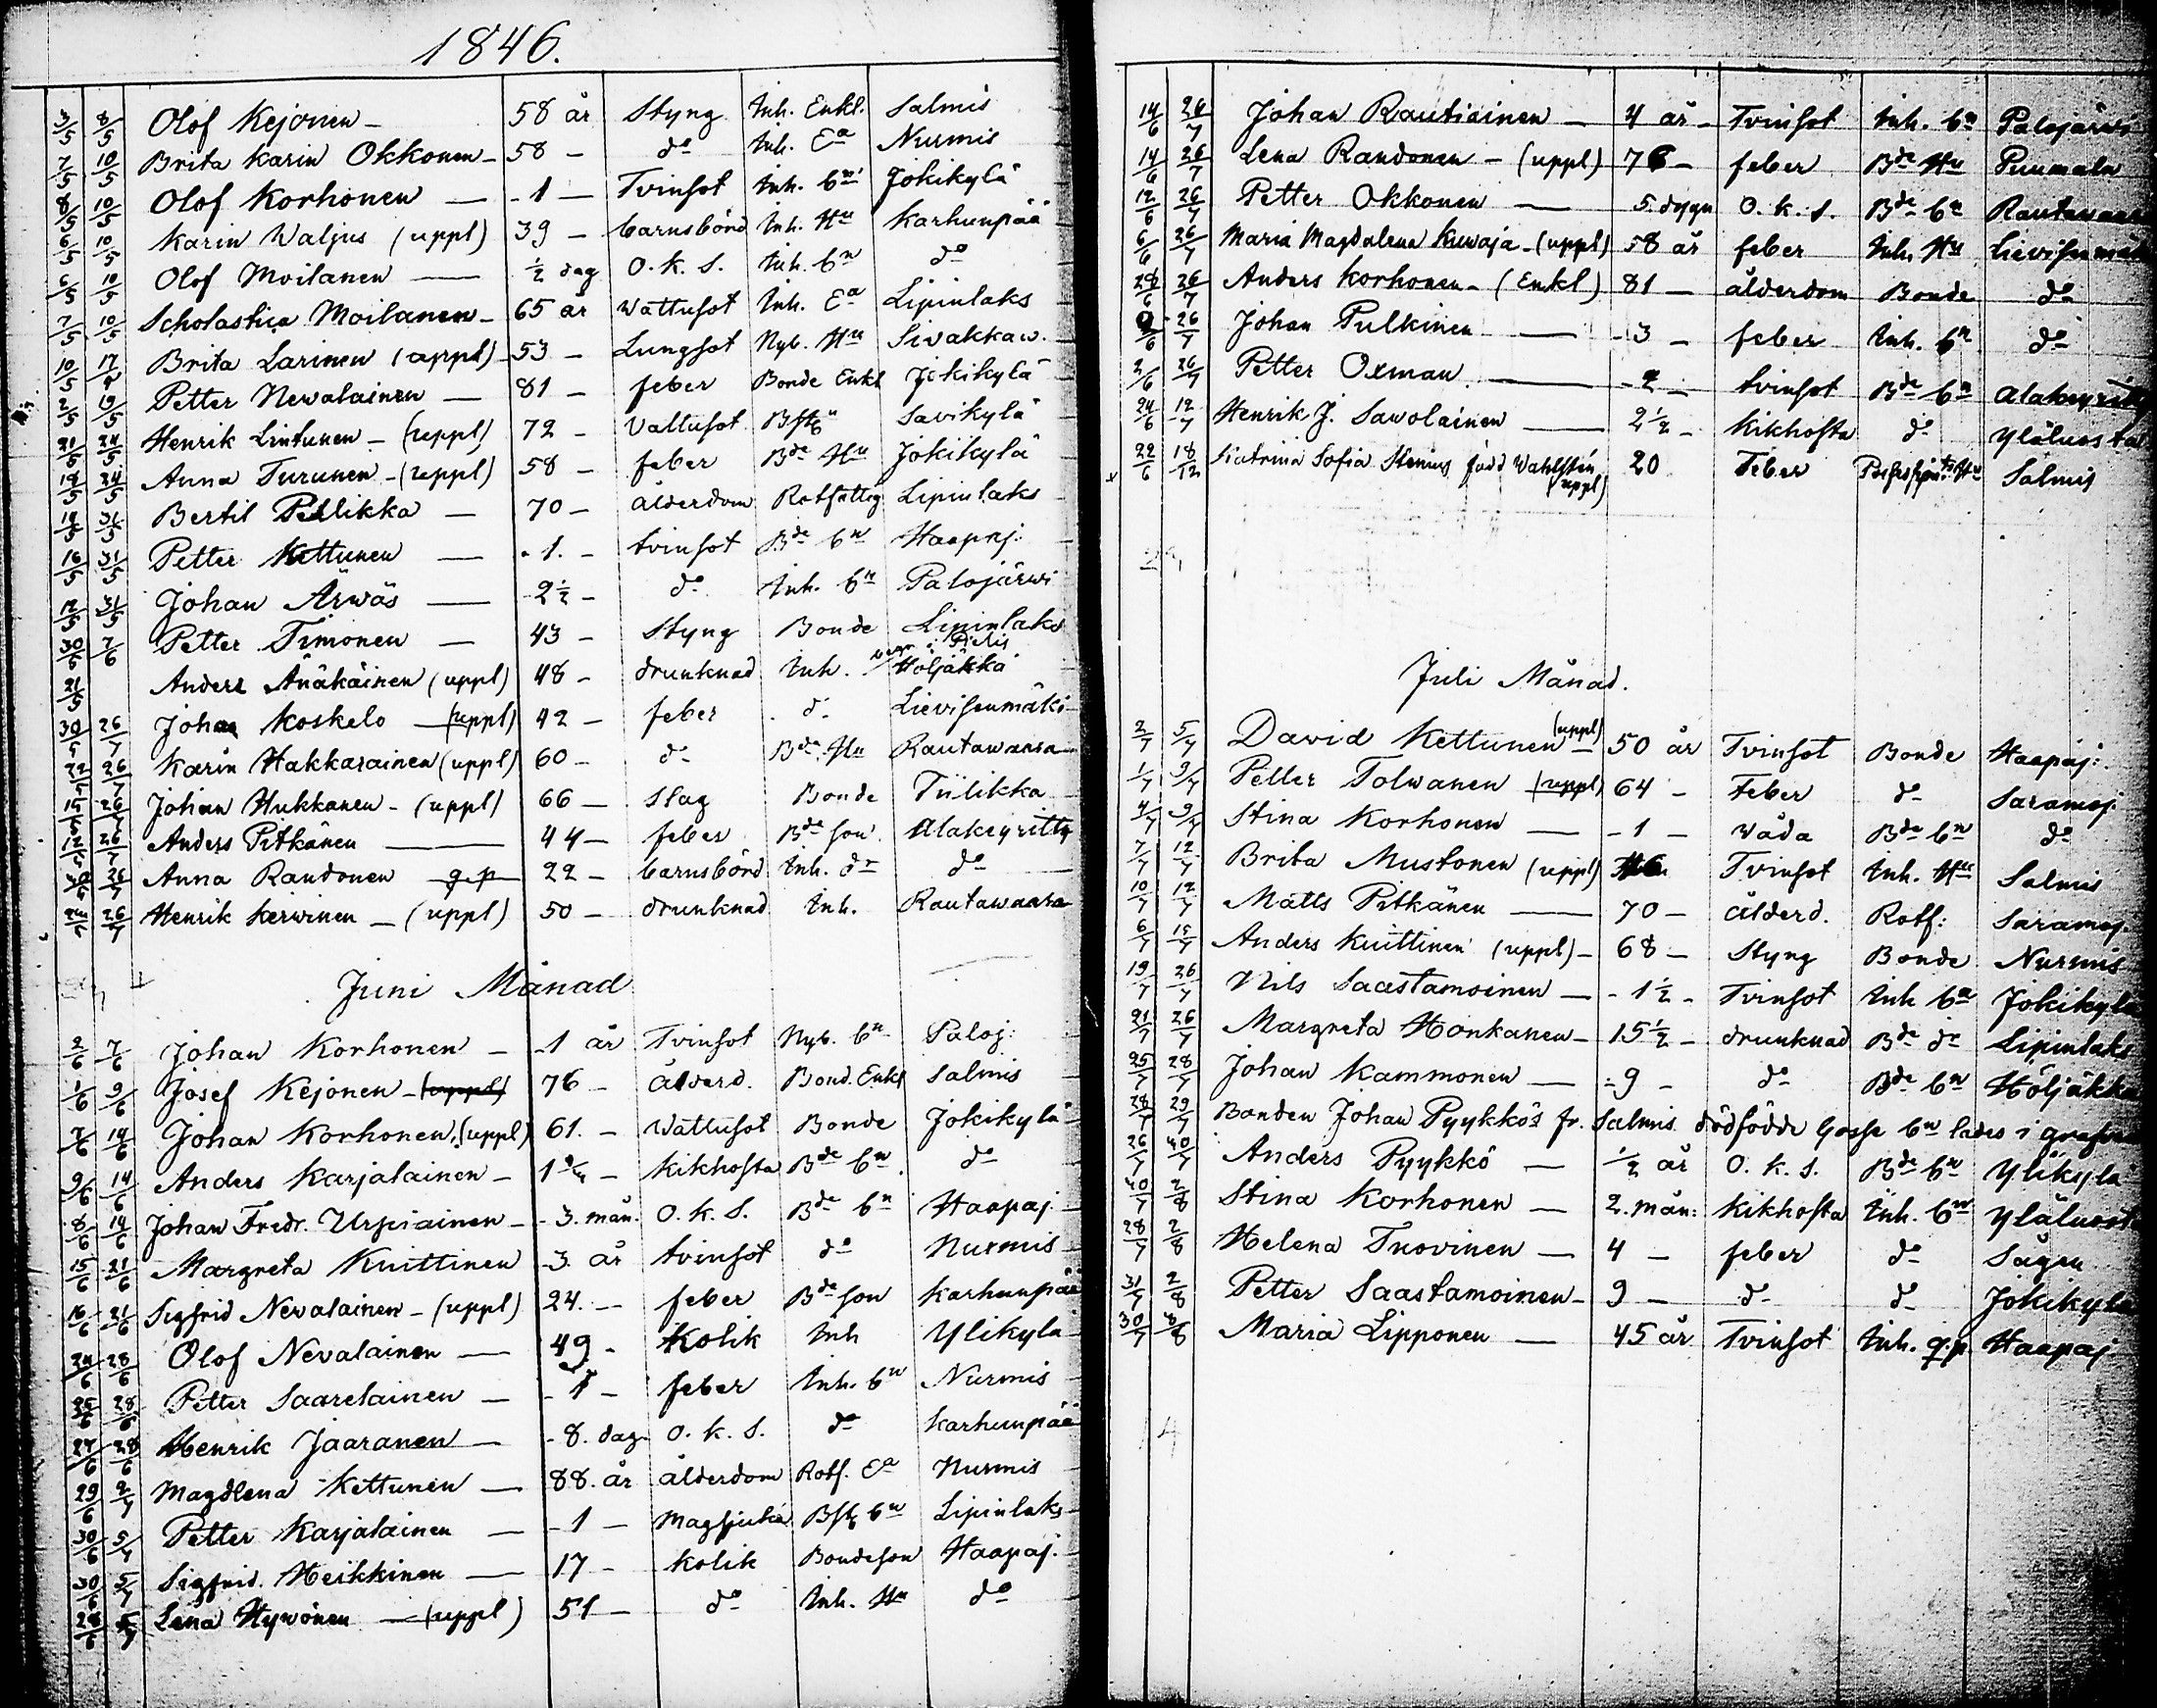 1846.
3/5 8/5 Olof Kejonen - 58 år Styng Inh. Enkl. Salmis
7/5 10/5 Brita Karin Okkonen - 58 - do Inh. Ea Nurmis
8/5 10/5 Olof Korhonen - 1 - Tvinsot Inh. bn Jokikylä
6/5 10/5 Karin Waljus (uppl) 39 - barnsbörd Inh. Hu Karhunpää
6/5 10/5 Olof Moilanen - 1/2 dag O. k. s. Inh. bn do
7/5 10/5 Scholastica Moilanen - 65 år Wattusot Inh. Ea Lipinlaks
10/5 17/5 Brita Larinen (uppl) - 53 - Lungsot Nyb. Hu Sivakkaw.
2/5 19/5 Petter Newalainen - 81 - feber Bonde Enkl Jokikylä
21/5 24/5 Henrik Lintunen - (uppl) 72 - Vattusot Savikylä
19/5 24/5 Anna Turunen - (uppl) 58 - feber Bde Hu Jokikylä
31/5 Bertil Pellikka - 70 - ålderdom Rotfattig Lipinlaks
16/5 31/5 Petter Kettunen - 1. - tvinsot Bde bn Haapaj.
12/5 31/5 Johan Ärwäs - 2 1/2 - do Inh. bn Palojärwi
30/5 7/6 Petter Timonen - 43 - Styng Bonde Lipinlaks
21/5 Anders Änäkäinen (uppl) 48 - drunknad Inh. begr. i Pielis Höljäkkä
30/5 26/7 Johan Koskelo - (uppl) 42 - feber do Lievisenmäki
22/5 26/7 Karin Hakkarainen (uppl) 60 - do Bde Hu Rautawaara
15/5 26/7 Johan Hukkanen - (uppl) 66 - Slag Bonde Tiilikka
12/5 26/7 Anders Pitkänen - 44 - feber Bde son Alakeyritty
30/5 26/7 Anna Randonen q. p 22 - barnsbörd Inh. dr do
24/5 26/7 Henrik Kerwinen - (uppl) 50 - drunknad Inh. Rautawaara
Juni Månad
2/6 7/6 Johan Korhonen - 1 år Tvinsot Nyb. bn Paloj:
1/6 9/6 Josef Kejonen - (uppl) 76 - ålderd. Bond. Enkl Salmis
7/6 14/6 Johan Korhonen, (uppl) 61. - Wattusot Bonde Jokikylä
9/6 14/6 Anders Karjalainen - 1 3/4 - Kikhosta Bde bn do
8/6 14/6 Johan Fredr. Urpiainen - 3. mån. O. k. S. Bde bn Haapaj.
15/6 21/6 Margreta Kuittinen 3. år tvinsot do Nurmis
16/6 21/6 Sigfrid Nevalainen - (uppl) 24. - feber Bde son Karhunpää
24/6 28/6 Olof Nevalainen - 49 - Kolik Inh Ylikylä
25/6 28/6 Petter Saarelainen - 1 - feber Inh. bn Nurmis
27/6 28/6 Henrik Jaaranen - 8. dag O. k. S. do Karhunpää
29/6 2/7 Magdlena Kettunen - 88. år ålderdom Rotf. Ea Nurmis
30/6 5/7 Petter Karjalainen - 1 - Magsjuka bn Lipinlaks
30/6 5/7 Sigfrid. Heikkinen - 17 - Kolik Bondeson Haapaj.
28/6 5/7 Lena Hywönen - (uppl) 51 - do Inh. Hu do
14/6 26/7 Johan Rautiainen - 4 år - Tvinsot Inh. bn Palojärwi
14/6 26/7 Lena Randonen - (uppl) 76 - feber Bde Hu Puumala
12/6 26/7 Petter Okkonen - 5. dygn O. k. s. Bde bn Rautawaara
6/6 26/7 Maria Magdalena Kuwaja - (uppl) 58 år feber Inh. Hu Lievisenmäki
26/7 Anders Korhonen - (Enkl) 81 - ålderdom Bonde do
26/7 Johan Pulkinen - 3 - feber Inh. bn do
2/6 26/7 Petter Oxman - 2 - tvinsot Bde bn Alakeyritty
24/6 12/7 Henrik J. Sawolainen - 2 1/2 - Kikhosta do Yläluosta
22/6 18/12 Katrina Sofia Stenius född Wahlstén (uppl) 20 Feber Salmis
Juli Månad.
2/7 5/7 David Kettunen (uppl) 50 år Tvinsot Bonde Haapaj:
1/7 9/7 Petter Tolwanen (uppl) 64 - Feber do Saramoj.
4/7 9/7 Stina Korhonen - 1 - Wåda Bde bn do
7/7 12/7 Brita Mustonen (uppl) Tvinsot Inh. Hu Salmis
10/7 12/7 Matts Pitkänen - 70 - ålderd. Rotf: Saramoj.
6/7 15/7 Anders Kuittinen (uppl) - 68 - Styng Bonde Nurmis
19/7 26/7 Nils Saastamoinen - 1 1/2 - Tvinsot Inh bn Jokikylä
21/7 26/7 Margreta Honkanen - 15 1/2 - drunknad Bde dr Lipinlaks
25/7 28/7 Johan Kammonen - 9 - do Bde bn Höljäkkä
28/7 29/7 Bonden Johan Pyykkös fr. Salmis dödfödde Gosse bn lades i grafven
26/7 30/7 Anders Pyykkö - 1/2 år O. k. s. Bde bn Ylikylä
30/7 2/8 Stina Korhonen - 2. mån: Kikhosta Inh. bn Yläluosta
28/7 2/8 Helena Tuovinen - 4 - feber do Sågen
31/7 2/8 Petter Saastamoinen - 9 - do do Jokikylä
30/7 8/8 Maria Lipponen - 45 år Tvinsot Inh. q.p. Haapaj
14